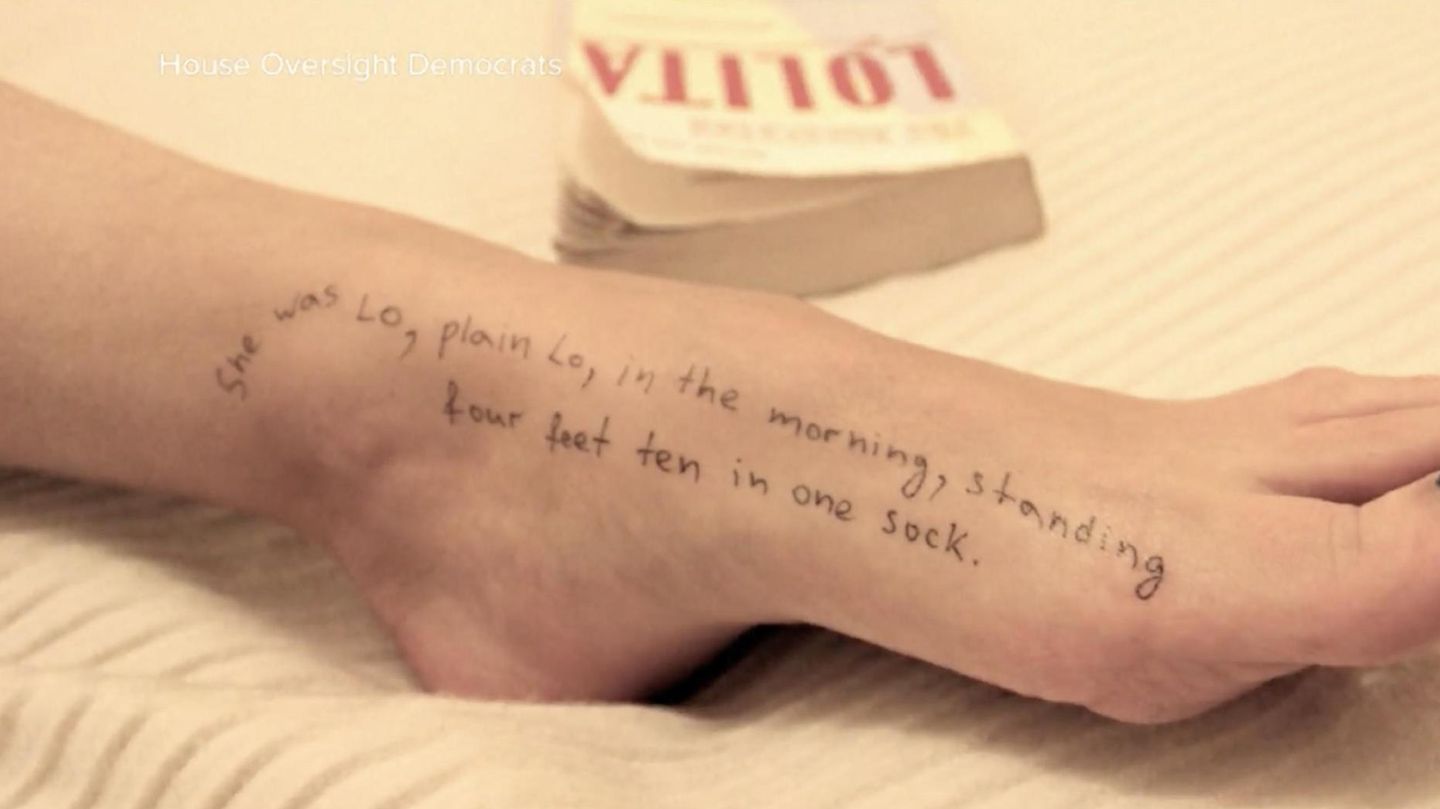 House Oversight Democrats
LOLITA
She was Lo, plain Lo, in the morning, standing
four feet ten in one sock.